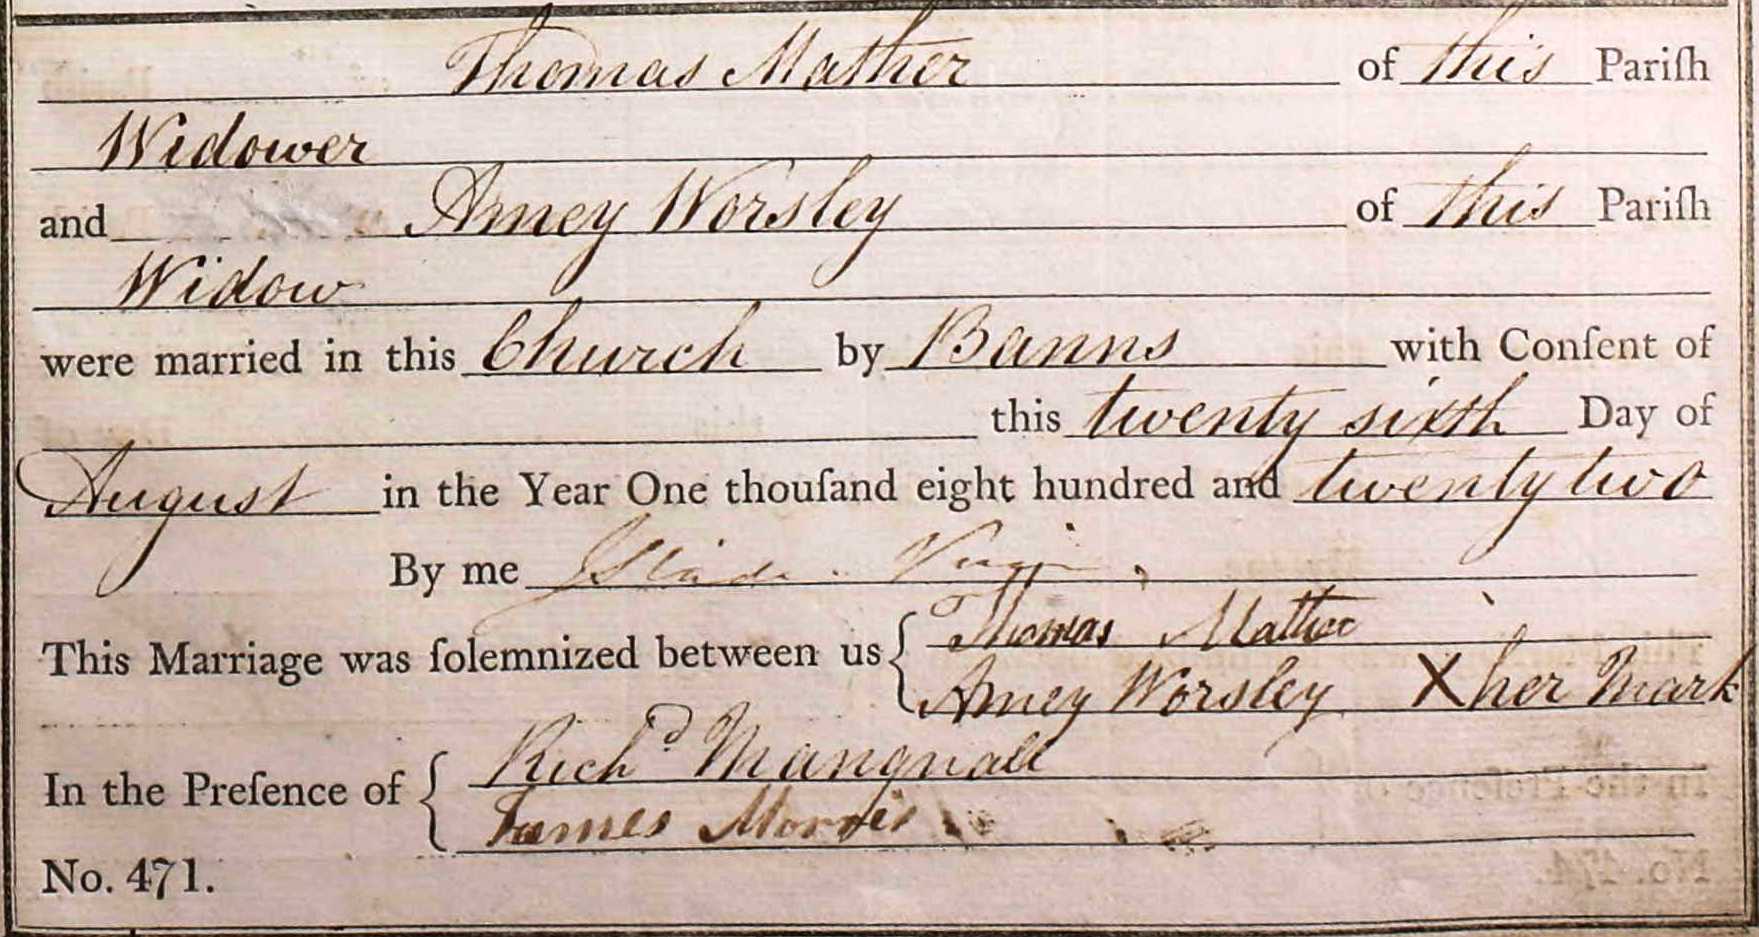 Thomas Mather of this Pariſh
Widower
and Amey Worsley of this Pariſh
Widow
were married in this Church by Banns with Conſent of
this twenty sixth Day of
August in the Year One thouſand eight hundred and twenty two
By me J Slade
This Marriage was ſolemnized between us { Thomas Mather
Amey Worsley X her Mark
In the Preſence of { Richd Mangnall
James Morris
No. 471.